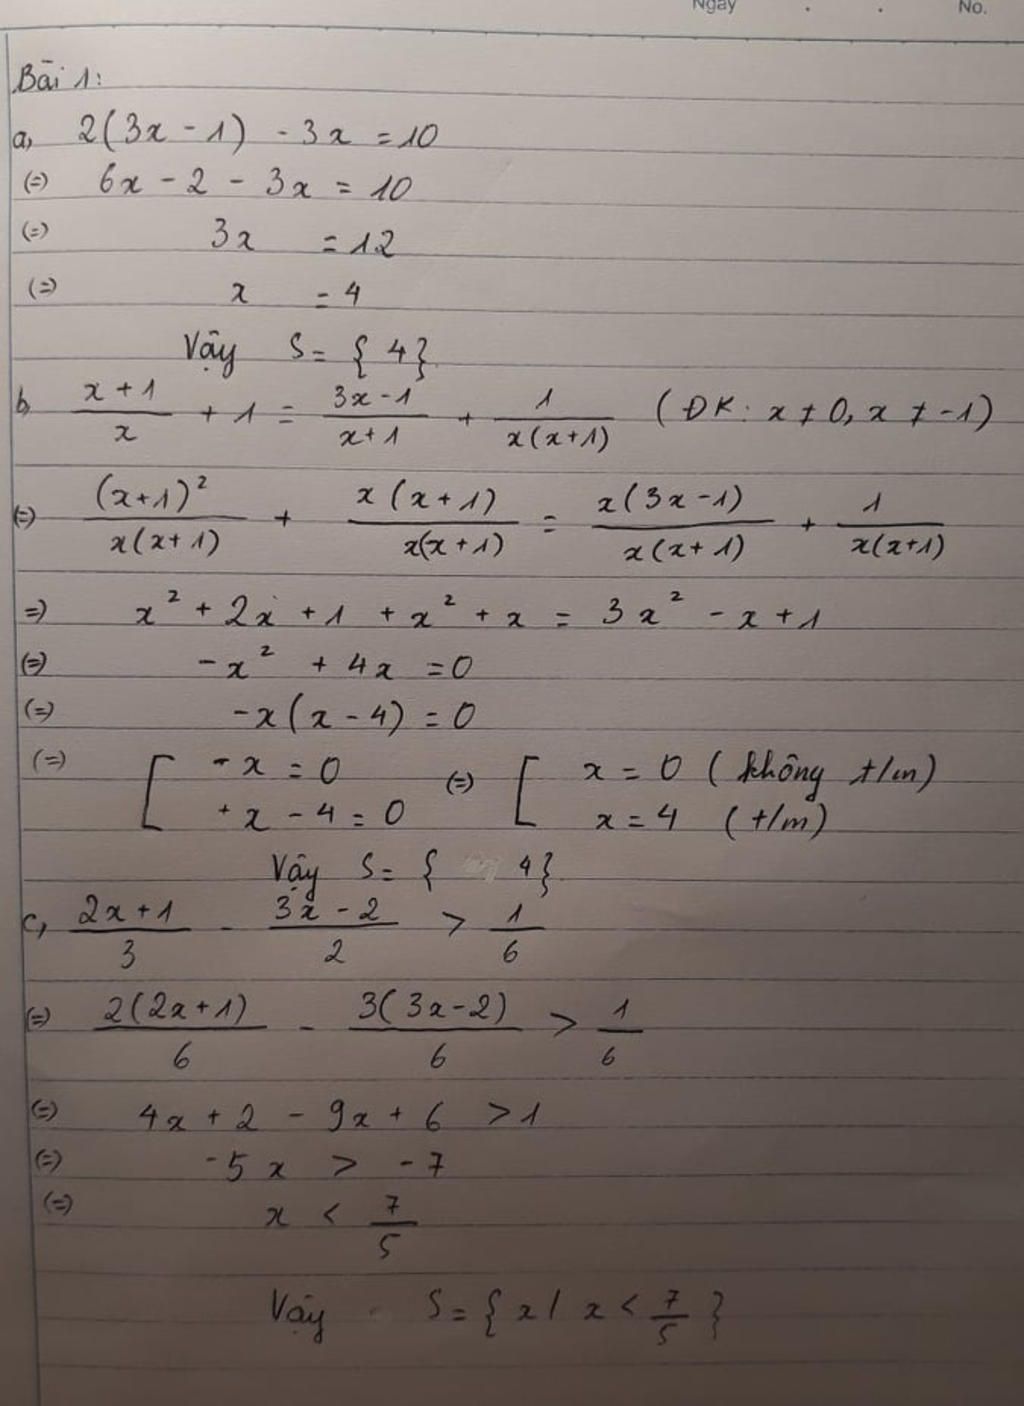 Ngày . . No.
Bài 1:
a, 2(3x - 1) - 3x = 10
(=) 6x - 2 - 3x = 10
(=) 3x = 12
(=) x = 4
Vậy S = { 4 }
b, (x + 1)/x + 1 = (3x - 1)/(x + 1) + 1/(x(x + 1)) (ĐK: x ≠ 0, x ≠ -1)
(=) (x+1)²/(x(x + 1)) + x(x + 1)/(x(x + 1)) = x(3x - 1)/(x(x + 1)) + 1/(x(x+1))
=) x² + 2x + 1 + x² + x = 3x² - x + 1
(=) -x² + 4x = 0
(=) -x(x - 4) = 0
(=) [ -x = 0 (=) [ x = 0 (không t/m)
+x - 4 = 0 x = 4 (t/m)
Vậy S = { 4 }
c, (2x + 1)/3 - (3x - 2)/2 > 1/6
(=) 2(2x + 1)/6 - 3(3x - 2)/6 > 1/6
(=) 4x + 2 - 9x + 6 > 1
(=) -5x > -7
(=) x < 7/5
Vậy S = { x / x < 7/5 }